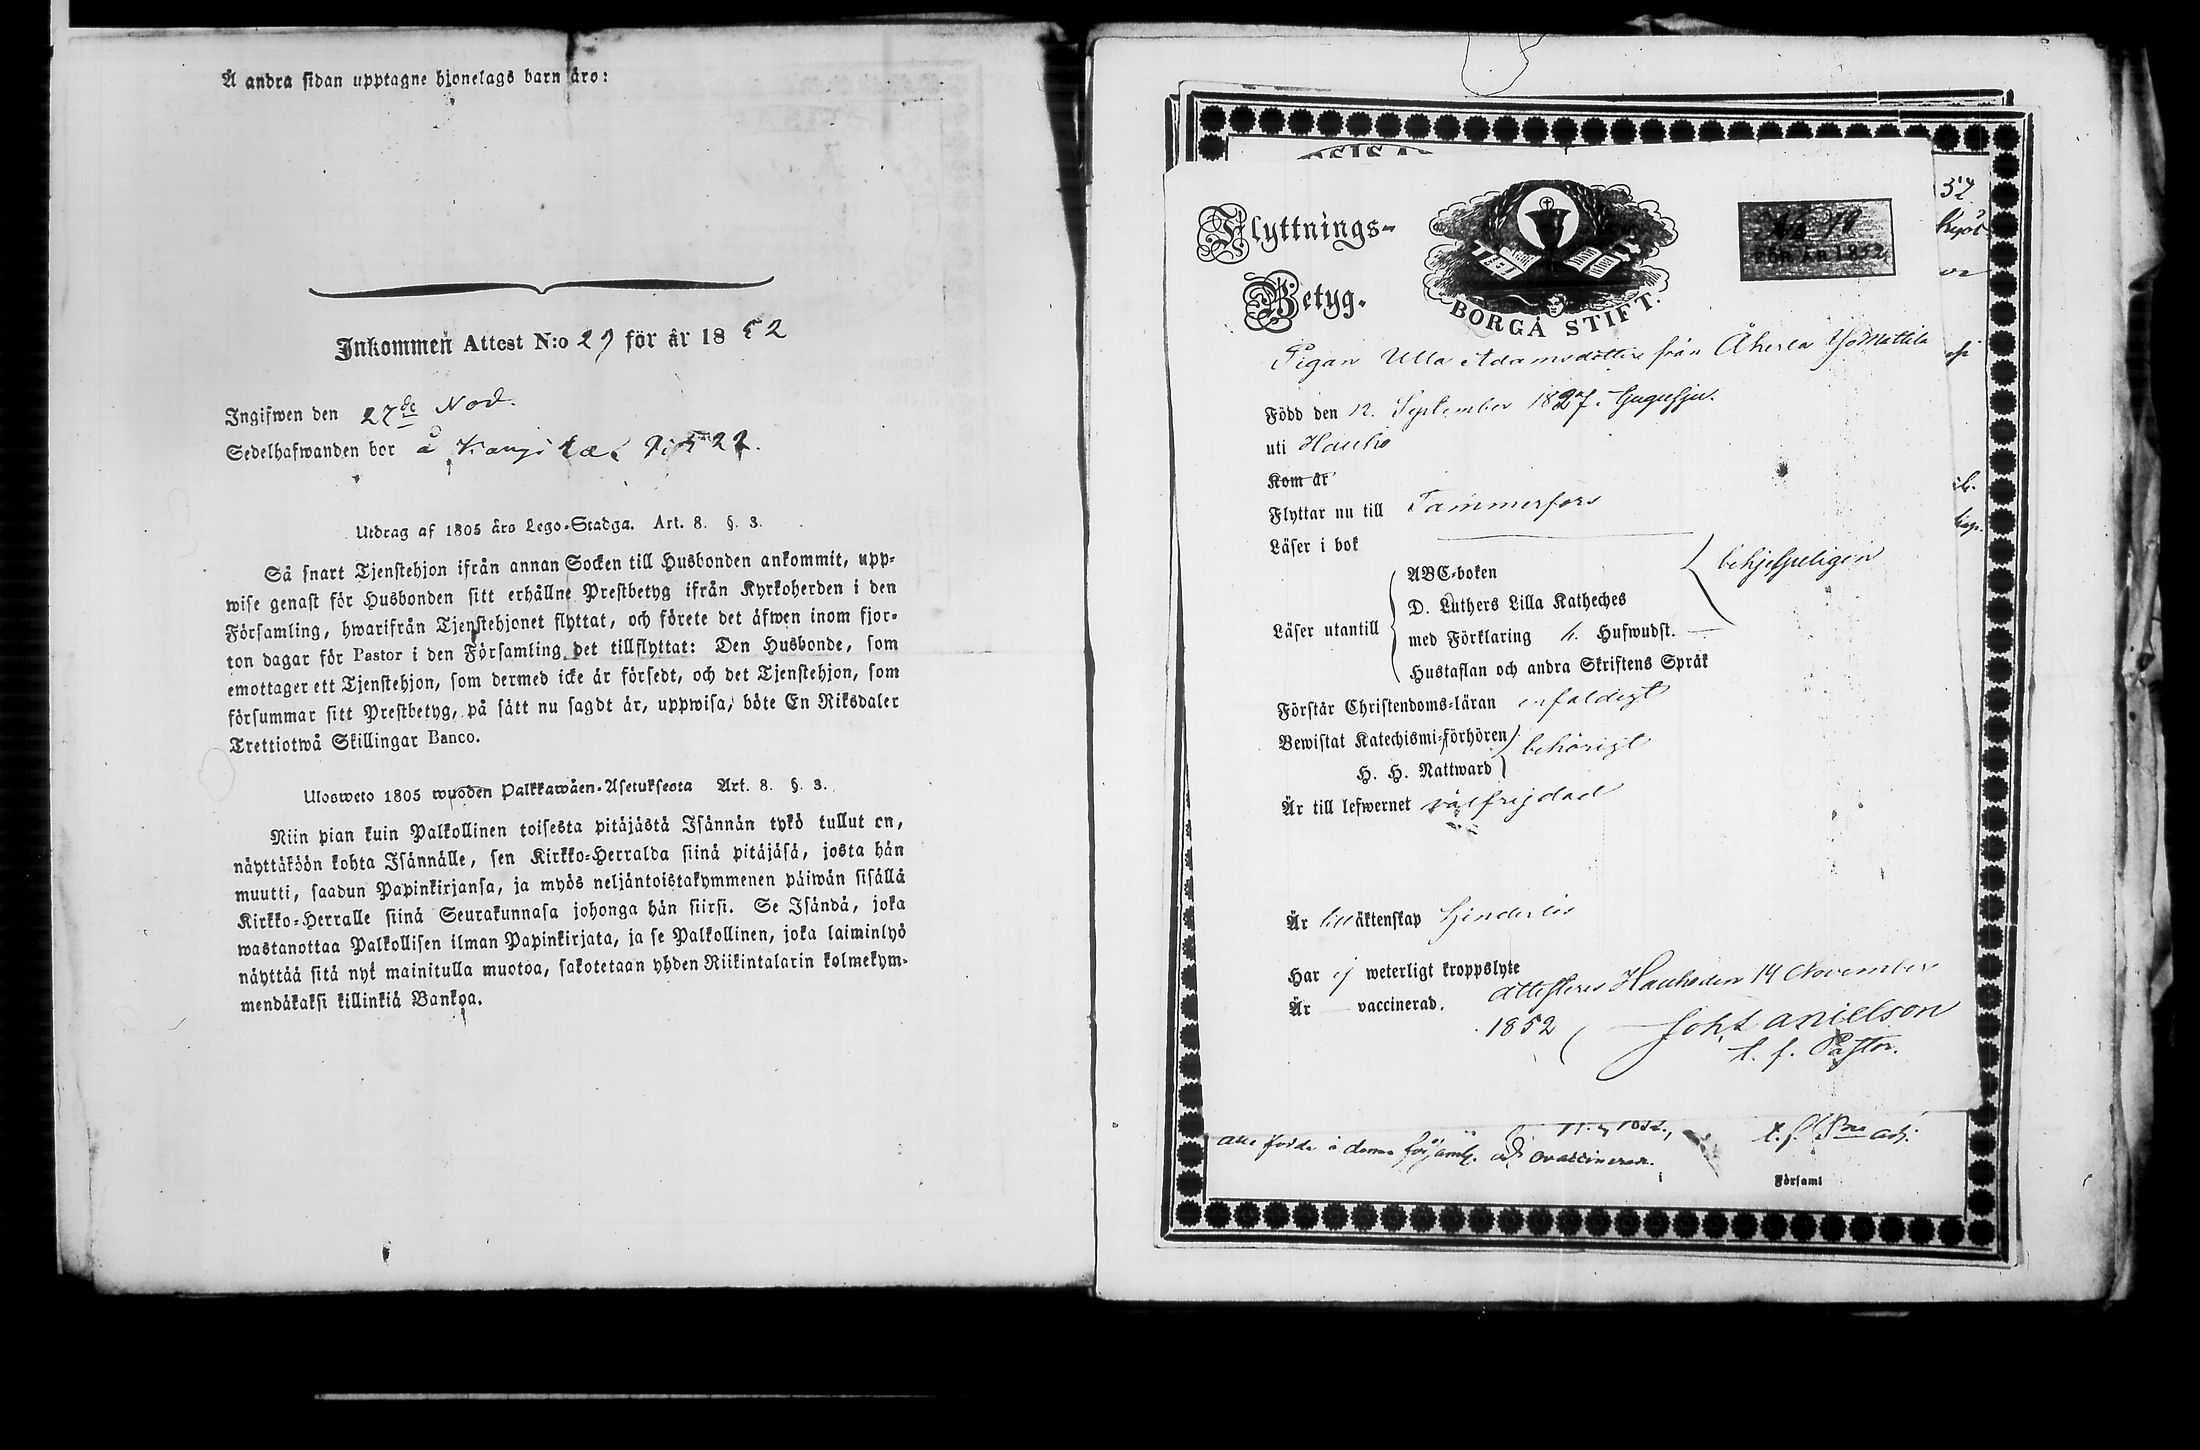 Å andra sidan upptagne hjonelags barn äro:
Inkommen Attest N:o 29 för år 1852
Ingifwen den 27de Nov.
Sedelhafwanden bor å
Utdrag af 1805 års Lego-Stadga. Art. 8. §. 3.
Så snart Tjenstehjon ifrån annan Socken till Husbonden ankommit, upp-
wise genast för Husbonden sitt erhållne Prestbetyg ifrån Kyrkoherden i den
Församling, hwarifrån Tjenstehjonet flyttat, och förete det äfwen inom fjor-
ton dagar för Pastor i den Församling det tillflyttat: Den Husbonde, som
emottager ett Tjenstehjon, som dermed icke är försedt, och det Tjenstehjon, som
försummar sitt Prestbetyg, på sätt nu sagdt är, uppwisa, böte En Riksdaler
Trettiotwå Skillingar Banco.
Ulosweto 1805 wuoden Palkkawäen-Asetuksesta Art. 8. §. 3.
Niin pian kuin Palkollinen toisesta pitäjästä Isännän tykö tullut on,
näyttäköön kohta Isännälle, sen Kirkko-Herralda siinä pitäjäsä, josta hän
muutti, saadun Papinkirjansa, ja myös neljäntoistakymmenen päiwän sisällä
Kirkko-Herralle siinä Seurakunnasa johonga hän siirsi. Se Isändä, joka
wastanottaa Palkollisen ilman Papinkirjata, ja se Palkollinen, joka laiminlyö
näyttää sitä nyt mainitulla muotoa, sakotetaan yhden Riikintalarin kolmekym-
mendäkaksi killinkiä Bankoa.
Flyttnings-
Betyg.
BORGÅ STIFT.
FÖR ÅR 1852
Pigan Ulla Adamsdotter från Åkerla
Född den 12. September 1827. tjugusju.
uti Hauho
Kom år
Flyttar nu till Tammerfors
Läser i bok
Läser utantill
ABC-boken
D. Luthers Lilla Katheches
med Förklaring h. Hufwudst.
Hustaflan och andra Skriftens Språk
behjelpeligen
Förstår Christendoms-läran enfaldigt
Bewistat Katechismi-förhören
H. H. Nattward
behörigt
Är till lefwernet välfrejdad
Är till äktenskap hinderlös
Har ej weterligt kroppslyte
Är vaccinerad.
attesteras Hauho den 14 November
1852
Joh. Danielson
t. f. Pastor.
alla födda i denna församl. och ovaccinerade.
t. f.
Församl